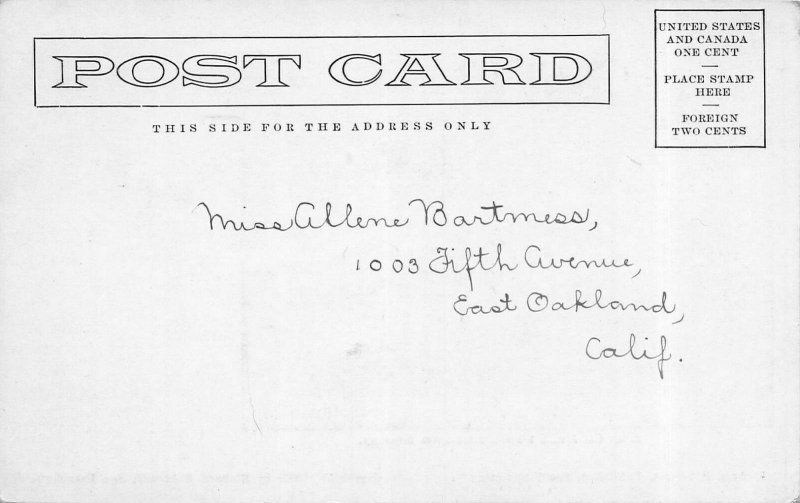 POST CARD
THIS SIDE FOR THE ADDRESS ONLY
UNITED STATES
AND CANADA
ONE CENT
PLACE STAMP
HERE
FOREIGN
TWO CENTS
Miss Allene Bartmess,
1003 Fifth Avenue,
East Oakland,
Calif.